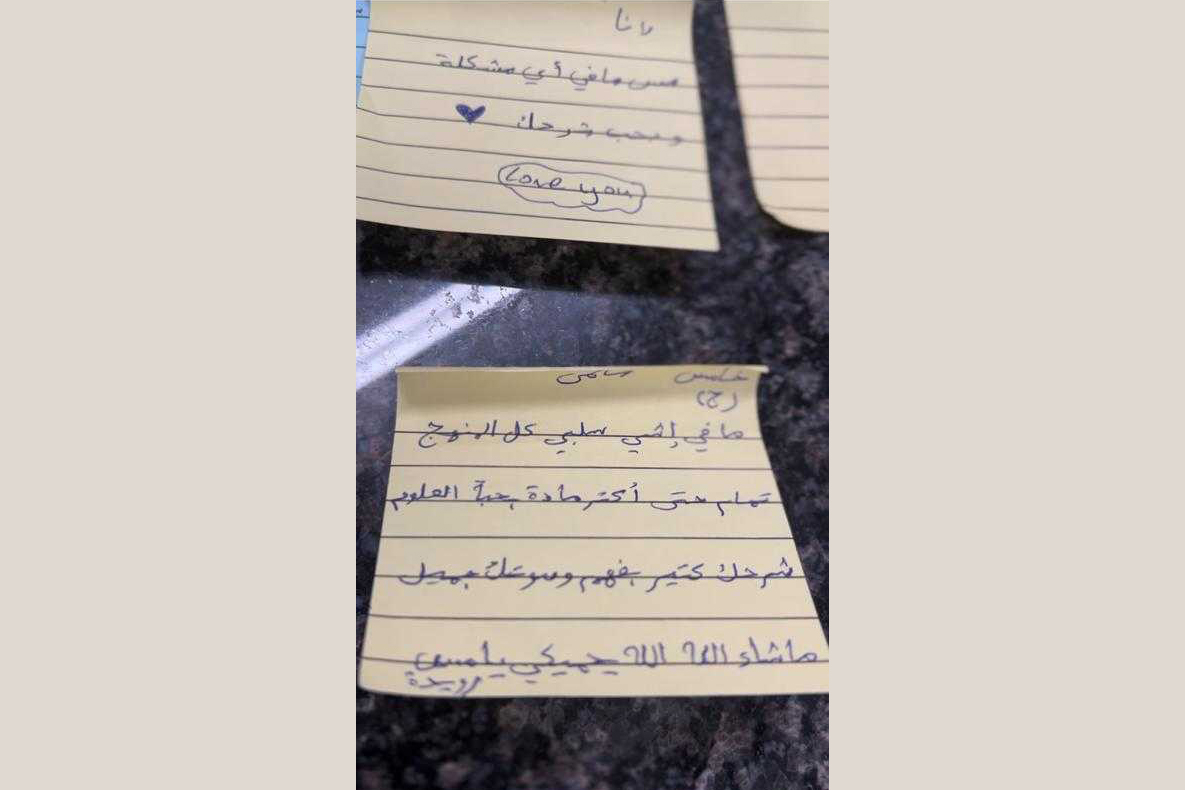 انا
مس ما في أي مشكلة
وبحب شرحك ♥
Love you
خامس سلمى
(ج)
ما في إشي سلبي كل المنهج
تمام حتى أكتر مادة بحبّا العلوم
شرحك كتير بفهم وصوتك جميل
ماشاء الله الله يحميكي يا مس
رويدة